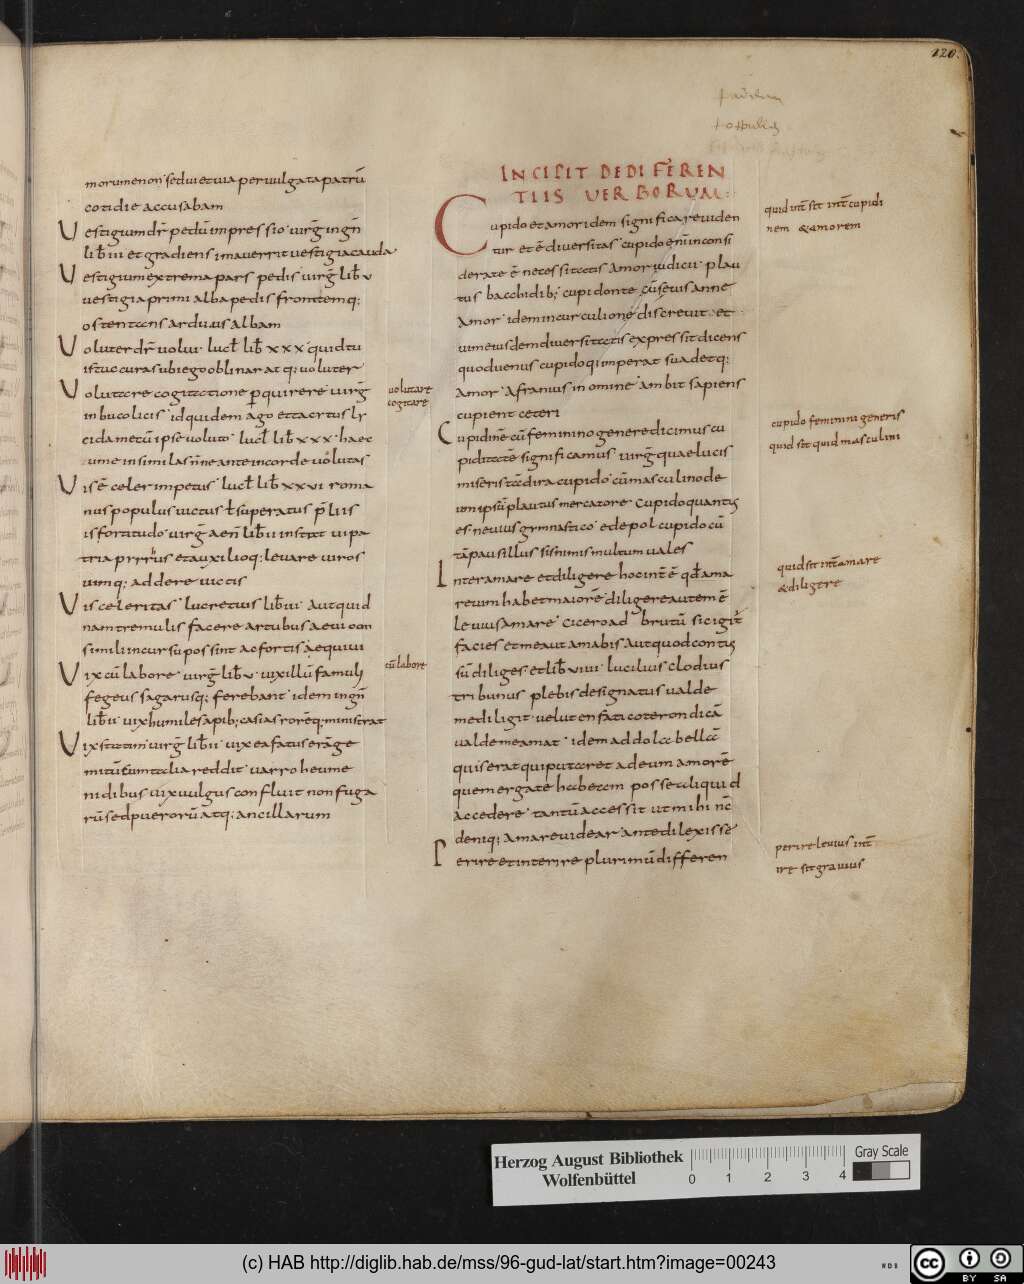 120.
morum enon sed ui et uia peruulgata patrū
cotidie accusabam
Vestigium dr̄ pedū inpressio uirḡ inḡn
lib̄ iii et gradiens ima uerrit uestigia cauda
Vestigium extrema pars pedis uirḡ lib̄ v
uestigia primi alba pedis frontemq;
ostentans arduus albam
Voluter dr̄ uolui lucł lib̄ xxx quid tu
istuc curas ubi ego oblinar atq; uoluter
Volutare cogitatione ꝑquirere uirḡ
in bucolicis id quidem ago et tacitus ly
cida mecū ipse uoluto lucł lib̄ xxx haec
Vis ē celer impetus lucł lib̄ xxvi roma
nus populus uictus ł superatus
is fortitudo uirḡ aen̄ lib̄ ii instat ui pa
et auxilioq; leuare uiros
uimq; addere uictis
Vis celeritas lucretius lib̄ iii aut quid
nam tremulis facere artubus aeuo
simili in cursu possint ac fortis aequi ui
Vix cū labore uirḡ lib̄ v uix illū famuli
fegeus sagarusq; ferebant idem inḡn
lib̄ ii uix humiles apib; casias rorēq; ministrat
Vix statim uirḡ lib̄ ii uix ea fatus erā
talia reddit uarro
nidibus uix uulgus confluit non fuga
rū sed puerorū atq; ancillarum
uolutare
cogitare
cū labore
INCIPIT DE DIFFEREN
TIIS VERBORUM:
Cupido et amor idem significare uiden
tur et ē diuersitas cupido enī inconsi
derate ē necessitatis amor iudicii plau
tus bacchidib; cupidon te
amor idem in curculione discreuit et
uim eiusdem diuersitatis expressit dicens
quod uenus cupidoq; imperat suadetq;
amor afranius in omine ambit sapiens
cupient ceteri
Cupidinē cū feminino genere dicimus cu
piditatē significamus uirḡ quae lucis
miseris tā dira cupido cū masculino de
um ipsū plautus mercatore cupido quantus
es neuius gymnastico edepol cupido cū
tā pausillus sis nimis multum uales
Inter amare et diligere hoc int̄ ē qđ ama
re uim habet maiorē diligere autem ē
leuius amare cicero ad brutū sic igit̄
facies et me aut amabis aut quod contentus
sū diliges et lib̄ viiii lucilius clodius
tribunus plebis designatus ualde
me diligit uel ut enfaticoteron dicā
ualde me amat idem ad dolabellā
quis erat qui putaret ad eum amorē
quem erga te habebam posse aliquid
accedere tantū accessit ut mihi nc̄
deniq; amare uidear ante dilexisse
Perire et interire plurimū differen
quid int̄ sit int̄ cupidi
nem & amorem
cupido feminini generis
quid sit quid masculini
quid sit int̄ amare
& diligere
perire leuius int̄
ire sit grauius
Herzog August Bibliothek
Wolfenbüttel
0 1 2 3 4
Gray Scale
(c) HAB http://diglib.hab.de/mss/96-gud-lat/start.htm?image=00243
WDB
cc BY SA